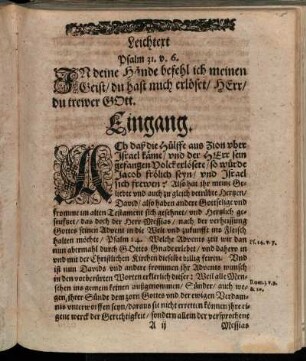 Leichtext
Psalm 31. v. 6.
IN deine Hände befehl ich meinen
Geist/ du hast mich erlöset/ HErr/
du trewer GOtt.
Eingang.
ACh daß die Hülffe aus Zion vber
Israel käme/ vnd der HErr sein
gefangen Volck erlösete/ so würde
Jacob frölich seyn/ vnd Israel
sich frewen: Also hat ihr meine Ge-
liebte vnd auch zu gleich betrübte Hertzen/
David/ also haben andere Gottselige vnd
fromme im alten Testament sich gesehnet/ vnd hertzlich ge-
seuffzet/ das doch der HErr Messias/ nach der verheissung
Gottes seinen Advent in die Welt vnd zukunfft ins Fleisch
halten möchte/ Psalm 14. Welche Advents zeit wir dan
nun abermahl durch GOttes Gnade erlebet/ vnd daher
vnd in der Christlichen Kirchen dieselbe billig feyren. Vnd
ist nun Davids vnd anderer frommen ihr Advents wunsch
in den vorberührten Worten
schen ins gemein keinen außgenommen/ Sünder/ auch we-
gen/ ihrer Sünde dem zorn Gottes vnd der ewigen Verdam-
nis vnterworffen seyn/ daraus sie nicht erretten können ihre ei-
gene werck der Gerechtigkeit/ sondern allein der versprochene
A ij Messias